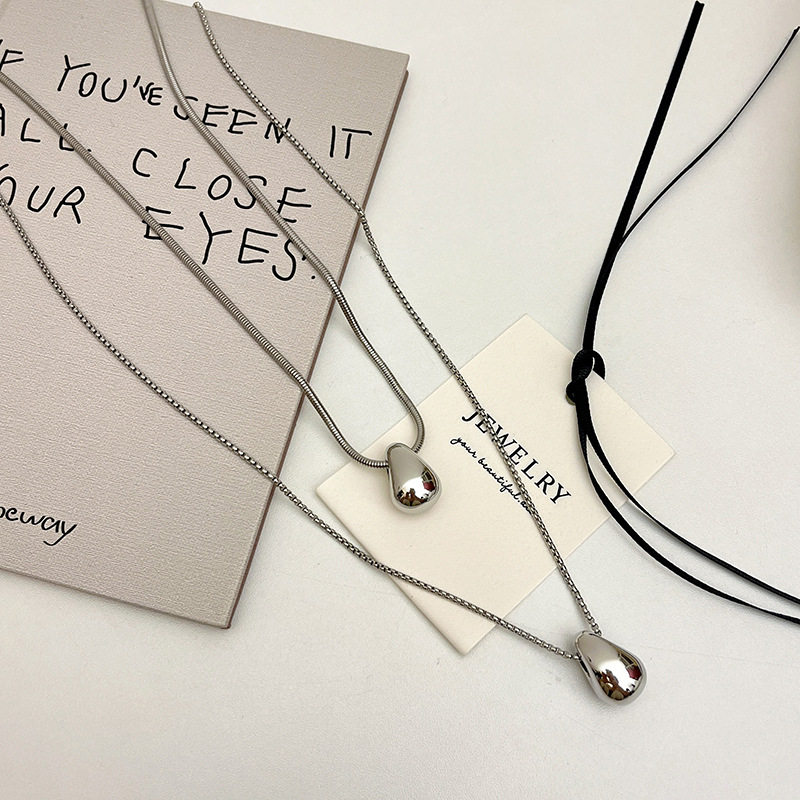 IF YOU'VE SEEN IT
ALL CLOSE
YOUR EYES.
beway
JEWELRY
your beautiful